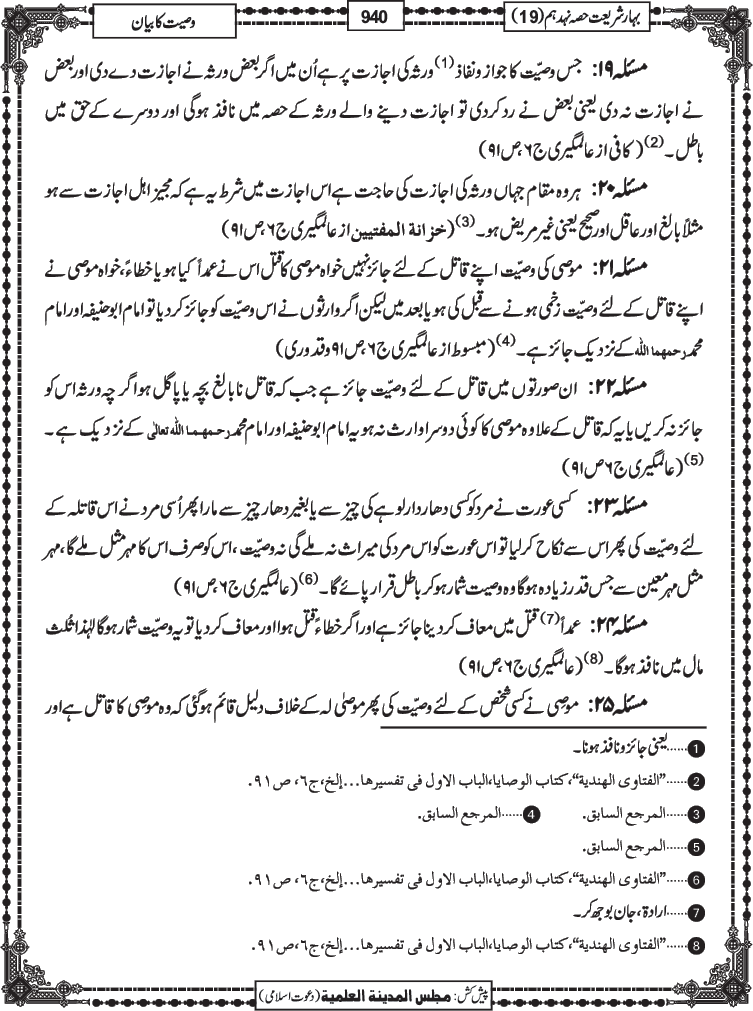 بہارِ شریعت حصہ نہدہم (19)
940
وصیت کا بیان
مسئلہ ۱۹: جس وصیّت کا جواز و نفاذ (1) ورثہ کی اجازت پر ہے اُن میں اگر بعض ورثہ نے اجازت دے دی اور بعض
نے اجازت نہ دی یعنی بعض نے رد کر دی تو اجازت دینے والے ورثہ کے حصہ میں نافذ ہوگی اور دوسرے کے حق میں
باطل۔ (2) (کافی از عالمگیری ج۶، ص۹۱)
مسئلہ ۲۰: ہر وہ مقام جہاں ورثہ کی اجازت کی حاجت ہے اس اجازت میں شرط یہ ہے کہ مجیز اہل اجازت سے ہو
مثلاً بالغ اور عاقل اور صحیح یعنی غیر مریض ہو۔ (3) (خزانة المفتیین از عالمگیری ج۶، ص۹۱)
مسئلہ ۲۱: موصی کی وصیّت اپنے قاتل کے لئے جائز نہیں خواہ موصی کا قتل اس نے عمداً کیا ہو یا خطاءً، خواہ موصی نے
اپنے قاتل کے لئے وصیّت زخمی ہونے سے قبل کی ہو یا بعد میں لیکن اگر وارثوں نے اس وصیّت کو جائز کر دیا تو امام ابو حنیفہ اور امام
محمد رحمهما الله کے نزدیک جائز ہے۔ (4) (مبسوط از عالمگیری ج۶، ص۹۱ و قدوری)
مسئلہ ۲۲: ان صورتوں میں قاتل کے لئے وصیّت جائز ہے جب کہ قاتل نابالغ بچہ یا پاگل ہو اگر چہ ورثہ اس کو
جائز نہ کریں یا یہ کہ قاتل کے علاوہ موصی کا کوئی دوسرا وارث نہ ہو یہ امام ابو حنیفہ اور امام محمد رحمهما الله تعالیٰ کے نزدیک ہے۔
(5) (عالمگیری ج۶ ص۹۱)
مسئلہ ۲۳: کسی عورت نے مرد کو کسی دھار دار لوہے کی چیز سے یا بغیر دھار چیز سے مارا پھر اُسی مرد نے اس قاتلہ کے
لئے وصیّت کی پھر اس سے نکاح کر لیا تو اس عورت کو اس مرد کی میراث نہ ملے گی نہ وصیّت، اس کو صرف اس کا مہر مثل ملے گا، مہر
مثل مہر معین سے جس قدر زیادہ ہوگا وہ وصیت شمار ہو کر باطل قرار پائے گا۔ (6) (عالمگیری ج۶، ص۹۱)
مسئلہ ۲۴: عمداً (7) قتل میں معاف کر دینا جائز ہے اور اگر خطاءً قتل ہوا اور معاف کر دیا تو یہ وصیّت شمار ہوگا لہٰذا ثُلث
مال میں نافذ ہوگا۔ (8) (عالمگیری ج۶، ص۹۱)
مسئلہ ۲۵: موصِی نے کسی شخص کے لئے وصیّت کی پھر موصیٰ لہ کے خلاف دلیل قائم ہوگئی کہ وہ موصِی کا قاتل ہے اور
1......یعنی جائز و نافذ ہونا۔
2......"الفتاوی الهندیة"، کتاب الوصایا، الباب الاول فی تفسیرها...إلخ، ج٦، ص٩١.
3......المرجع السابق. 4......المرجع السابق.
5......المرجع السابق.
6......"الفتاوی الهندیة"، کتاب الوصایا، الباب الاول فی تفسیرها...إلخ، ج٦، ص٩١.
7......ارادۃً، جان بوجھ کر۔
8......"الفتاوی الهندیة"، کتاب الوصایا، الباب الاول فی تفسیرها...إلخ، ج٦، ص٩١.
پیش کش: مجلس المدينة العلمية (دعوت اسلامی)